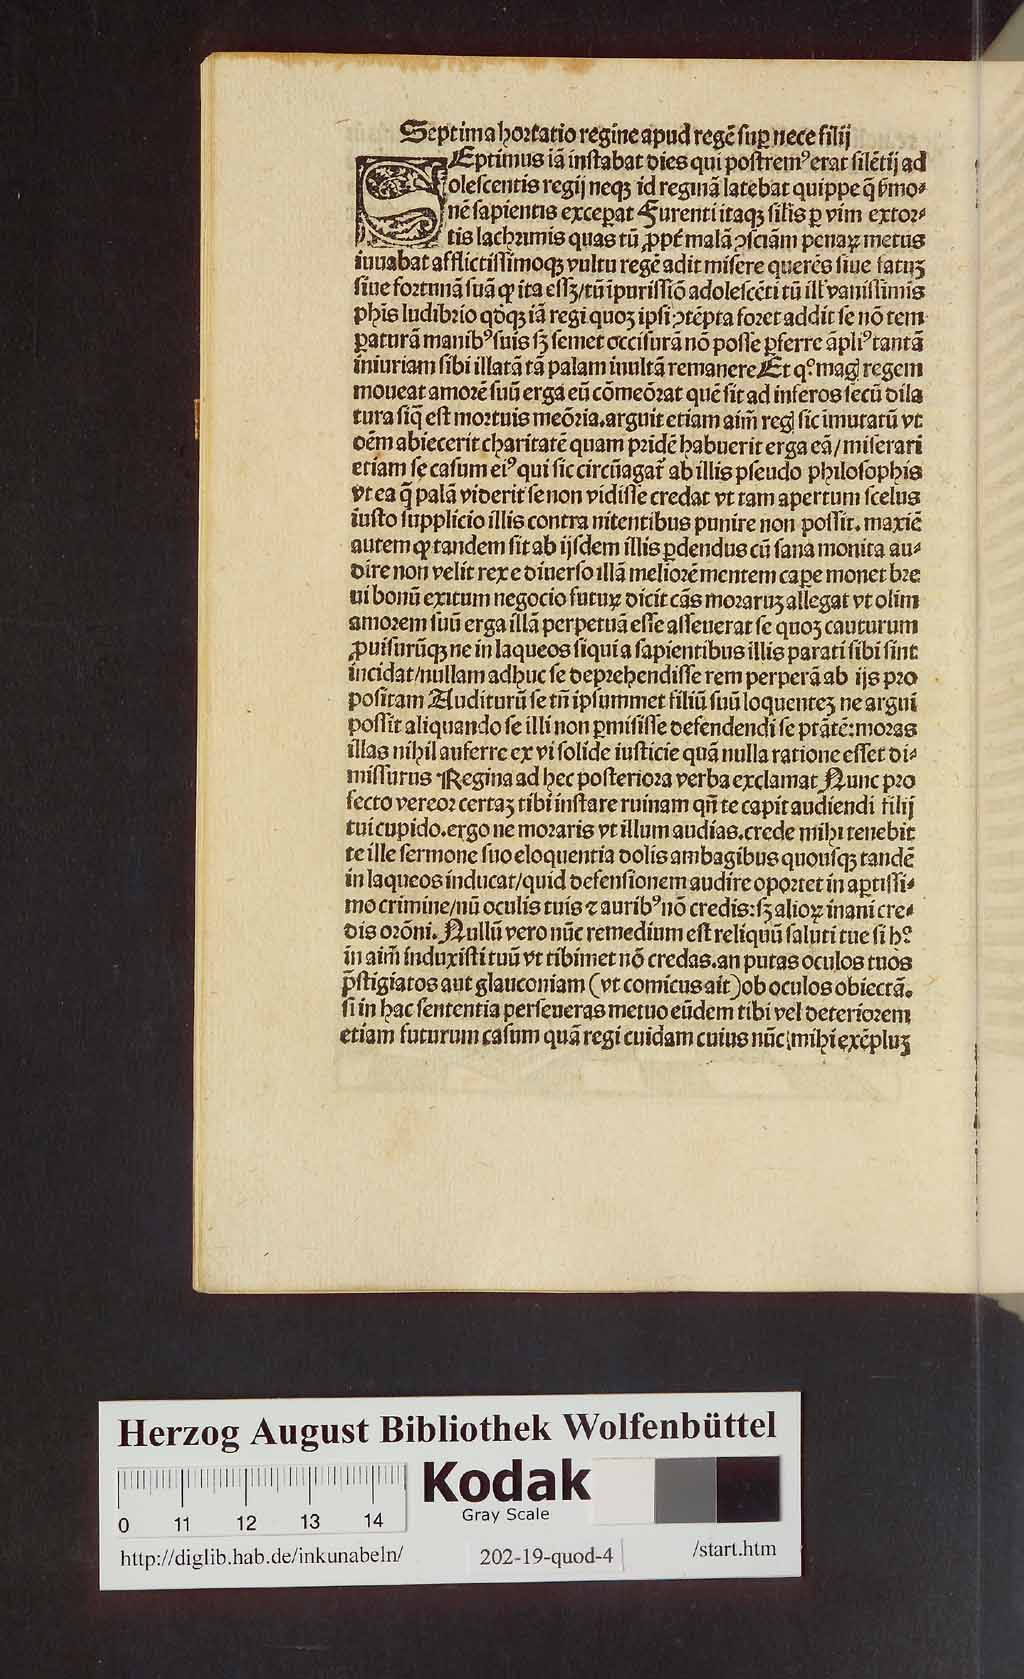 Septima hortatio regine apud regē sup̱ nece filij
SEptimus iā instabat dies qui postremꝰ erat silētij ad
olescentis regij neqꝫ id reginā latebat quippe q̄ ẜmo-
nē sapientis exceperat Furenti itaqꝫ silis p̱ vim extor-
tis lachrimis quas tū ꝓpẜ malā ꝯsciām penaꝝ metus
iuuabat afflictissimoqꝫ vultu regē adit misere querēs siue fatuꝫ
siue fortunā suā ꝙ ita essꝫ/tū īpurissiō adolescēti tū ill' vanissimis
ph̄is ludibrio qōqꝫ iā regi quoꝫ ipsi ꝯtēpta foret addit se nō tem
p̱aturā manibꝰ suis sꝫ semet occisurā nō posse p̱ferre āpliꝰ tantā
iniuriam sibi illatā tā palam inultā remanere Et qº magꝭ regem
moueat amorē suū erga eū cōmeōrat quē sit ad inferos secū dila
tura siq̄ est mortuis meōria. arguit etiam aim̄ regꝭ sic īmutatū vt
oēm abiecerit charitatē quam pridē habuerit erga eā/miserari
etiam se casum eiꝰ qui sic circūagat᷑ ab illis pseudo philosophis
vt ea q̄ palā viderit se non vidisse credat vt tam apertum scelus
iusto supplicio illis contra nitentibus punire non possit. maxiē
autem ꝙ tandem sit ab ijsdem illis p̱dendus cū sana monita au-
dire non velit rex e diuerso illā meliorē mentem cap̱e monet bre
ui bonū exitum negocio futuꝝ dicit cās moraruꝫ allegat vt olim
amorem suū erga illā perpetuā esse asseuerat se quoꝫ cauturum
ꝓuisurūqꝫ ne in laqueos siqui a sapientibus illis parati sibi sint
incidat/nullam adhuc se deprehendisse rem perperā ab ijs pro
positam Auditurū se tn̄ ipsummet filiū suū loquenteꝫ ne argui
possit aliquando se illi non p̱misisse defendendi se ptātē: moras
illas nihil auferre ex vi solide iusticie quā nulla ratione esset di-
missurus Regina ad hec posteriora verba exclamat Nunc pro
fecto vereor certaꝫ tibi instare ruinam qn̄ te capit audiendi filij
tui cupido. ergo ne moraris vt illum audias. crede mihi tenebit
te ille sermone suo eloquentia dolis ambagibus quousqꝫ tandē
in laqueos inducat/quid defensionem audire oportet in ap̱tissi-
mo crimine/nū oculis tuis ⁊ auribꝰ nō credis: sꝫ alioꝝ inani cre-
dis orōni. Nullū vero nūc remedium est reliquū saluti tue si hº
in aim̄ induxisti tuū vt tibimet nō credas. an putas oculos tuos
p̄stigiatos aut glauconiam (vt comicus ait) ob oculos obiectā.
si in hac sententia perseueras metuo eūdem tibi vel deteriorem
etiam futurum casum quā regi cuidam cuius nūc mihi exēpluꝫ
Herzog August Bibliothek Wolfenbüttel
Kodak
Gray Scale
0 11 12 13 14
http://diglib.hab.de/inkunabeln/ 202-19-quod-4 /start.htm